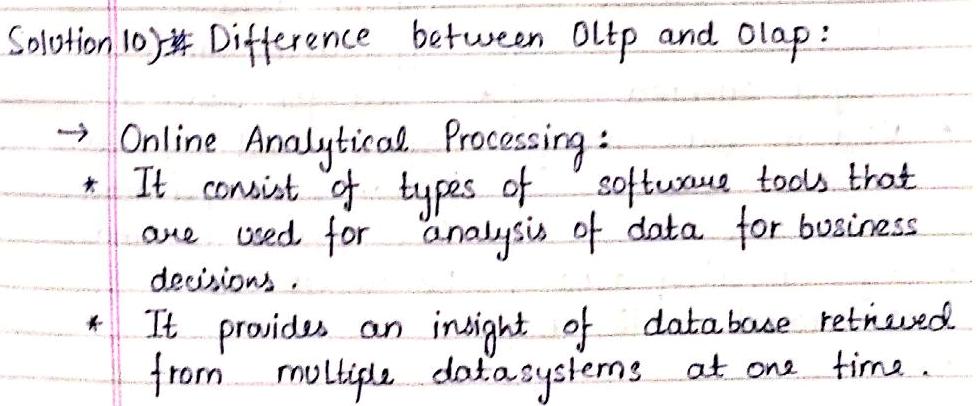 Solution 10) # Difference between Oltp and Olap :
→ Online Analytical Processing :
* It consist of types of software tools that
are used for analysis of data for business
decisions .
* It provides an insight of database retrieved
from multiple datasystems at one time .